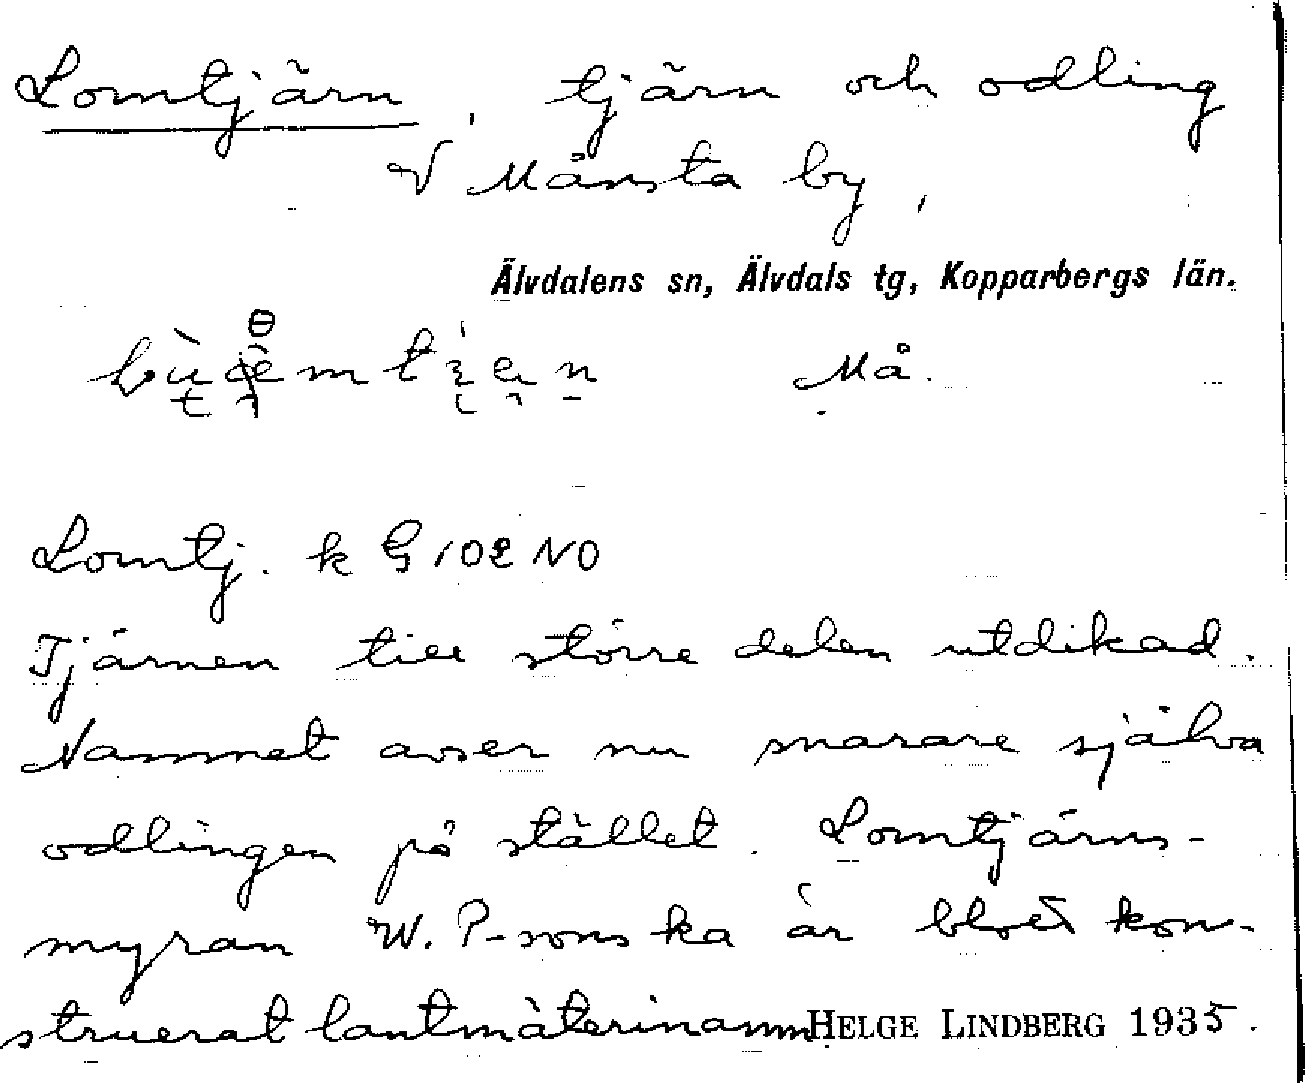 Lomtjärn, tjärn och odling
V Månsta by,
Älvdalens sn, Älvdals tg, Kopparbergs län.
Må.
Lomtj. k G 102 NO
Tjärnen till större delen utdikad.
Namnet avser nu snarare själva
odlingen på stället. Lomtjärns-
myran W. P-sons ka är blott kon-
struerat lantmäterinamn HELGE LINDBERG 1935.